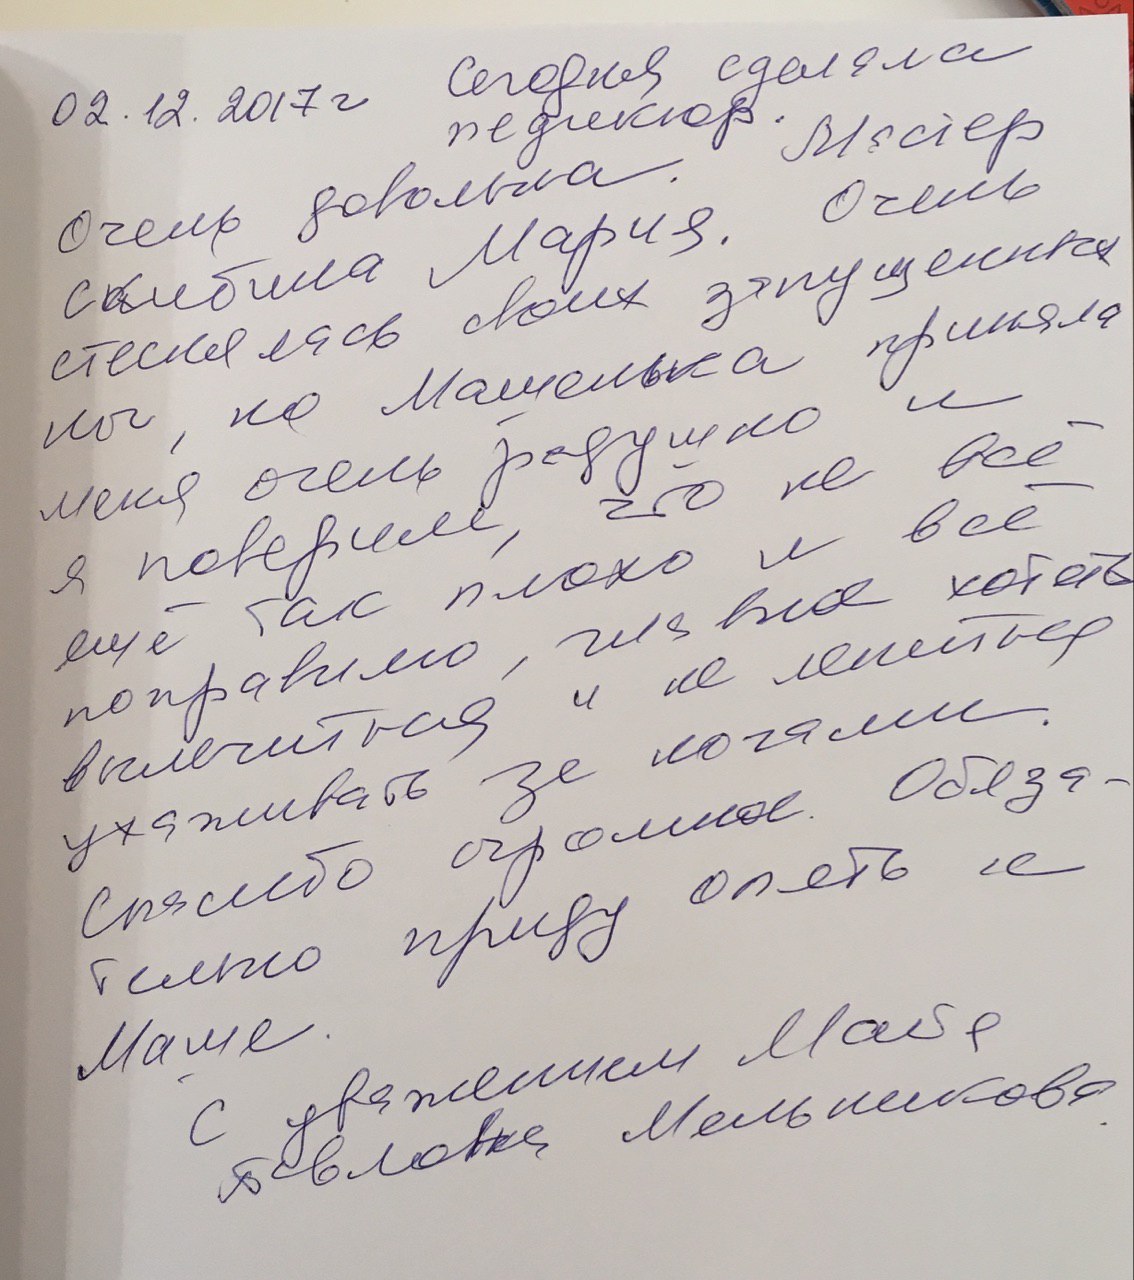 02.12.2017г Сегодня сделала
педикюр.
Очень довольна. Мастер
Скибина Мария. Очень
стеснялась своих запущенных
ног, но Машенька приняла
меня очень радушно и
я поверила, что не всё
ещё так плохо и всё
поправимо, главное хотеть
вылечиться и не лениться
ухаживать за ногами.
Спасибо огромное. Обяза-
тельно приду опять к
Маше.
С уважением Майя
Павловна Мельникова.